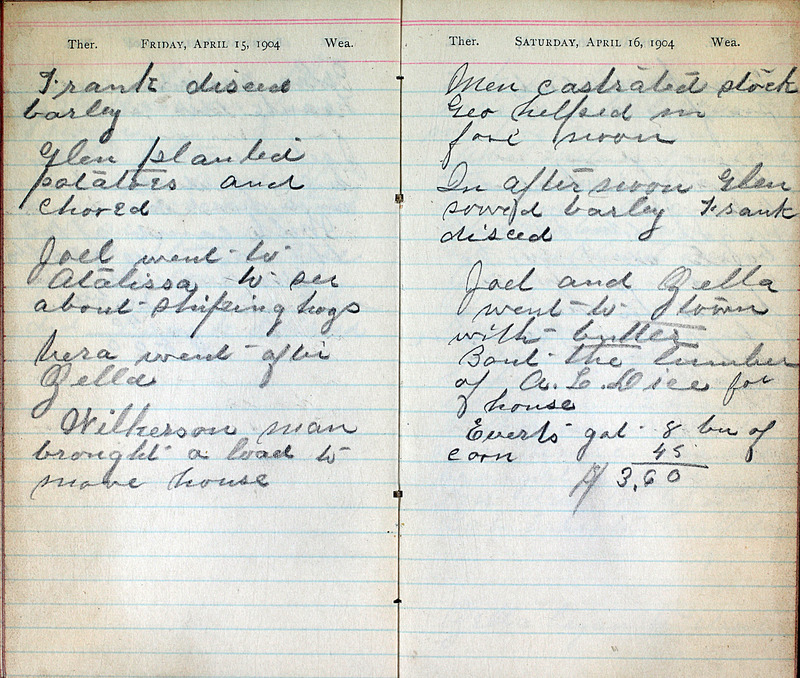 Ther. FRIDAY, APRIL 15, 1904 Wea.
Frank disced
barley
Glen planted
potatoes and
chored
Joel went to
Atalissa to see
about shiping hogs
Vera went after
Zella
Wilkerson man
brought a load to
move house
Ther. SATURDAY, APRIL 16, 1904 Wea.
Men castrated stock
Geo helped in
fore noon
In after noon Glen
sowed barley Frank
disced
Joel and Zella
went to town
with butter
Bout the lumber
of A. L. Dice for
house
Everts got 8 bu of
corn 45
3.60